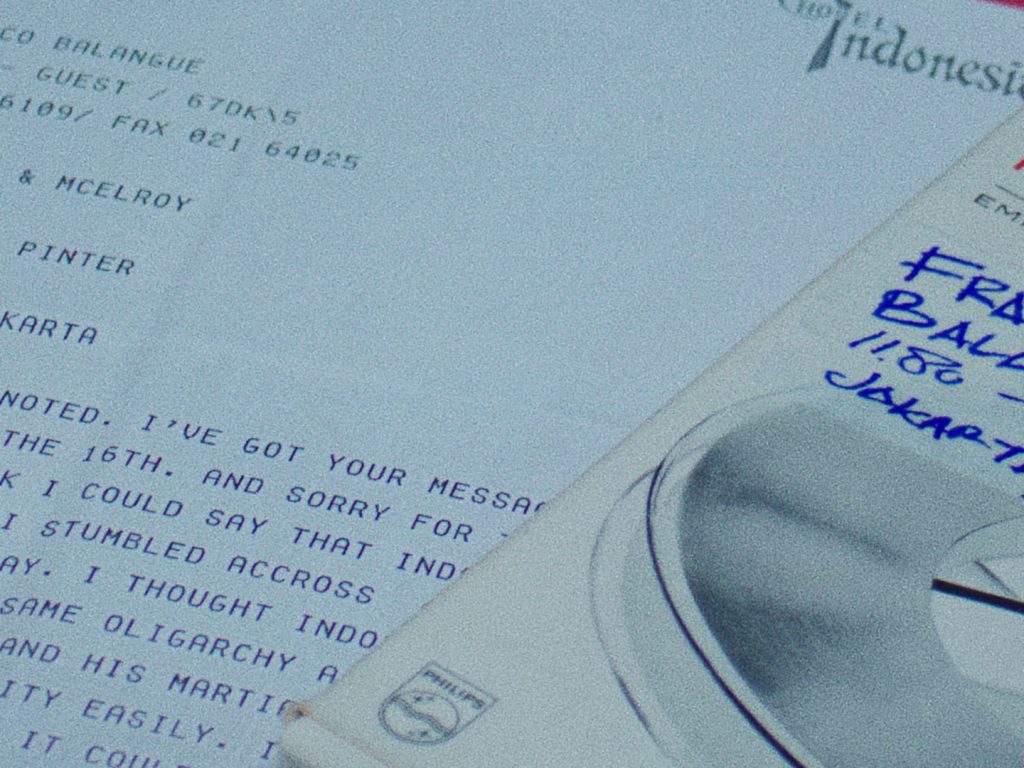 HOTEL
Indonesia
CO BALANGUE
- GUEST / 67DK\5
6109/ FAX 021 64025
& MCELROY
PINTER
KARTA
NOTED. I'VE GOT YOUR MESSAG
THE 16TH. AND SORRY FOR
K I COULD SAY THAT INDO
I STUMBLED ACCROSS
AY. I THOUGHT INDO
SAME OLIGARCHY A
AND HIS MARTIA
ITY EASILY. I
IT COUL
EM
FRA
BALA
11.80 -
JAKARTA
PHILIPS